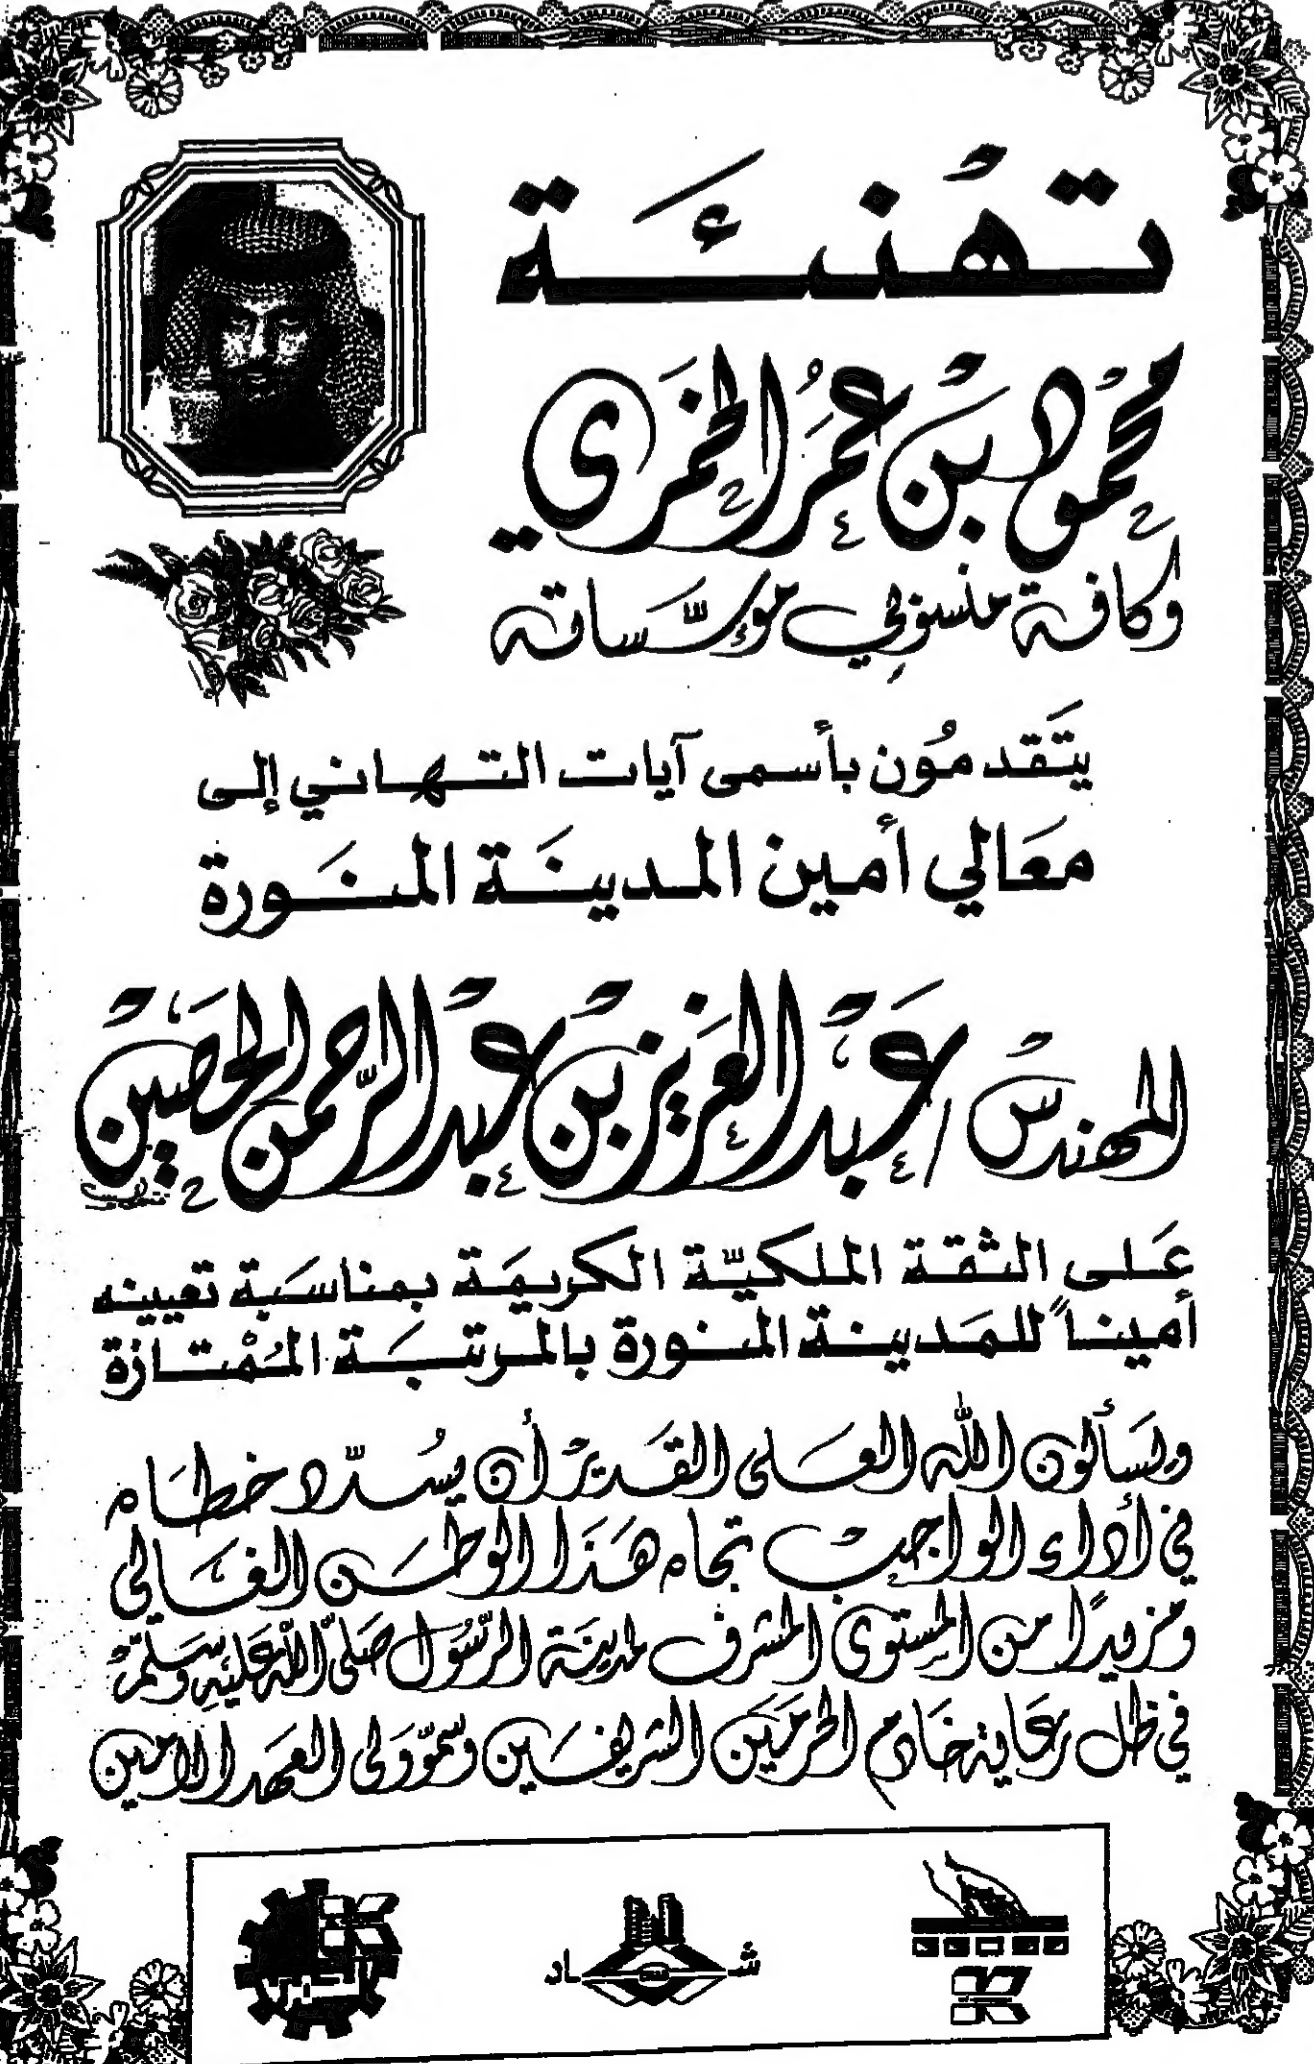 تهنئة
محمود بن عمر الخمري
وكافة منسوبي مؤسساته
يتقدمُون بأسمى آيات التهاني إلى
معَالي أمين المدينَة المنَورة
المهندس / عَبد العَزيز بن عبد الرّحمن الحصَين
عَلى الثقة الملكيّة الكريمَة بمناسَبة تعيينه
أميناً للمَدينة المنورة بالمرتبَة المُمْتازة
ويسَألون الله العَلى القَدير أن يسُدّد خطَاه
في أداء الواجب تجاه هَذا الوطَن الغَالي
ومزيدًا من المستوى المشرف لمدينَة الرّسُول صَلّى الله عَليهِ وَسلّم
في ظل رعَاية خَادم الحرمَين الشريفَين وسموّ وَلى العَهد الامين
شاد